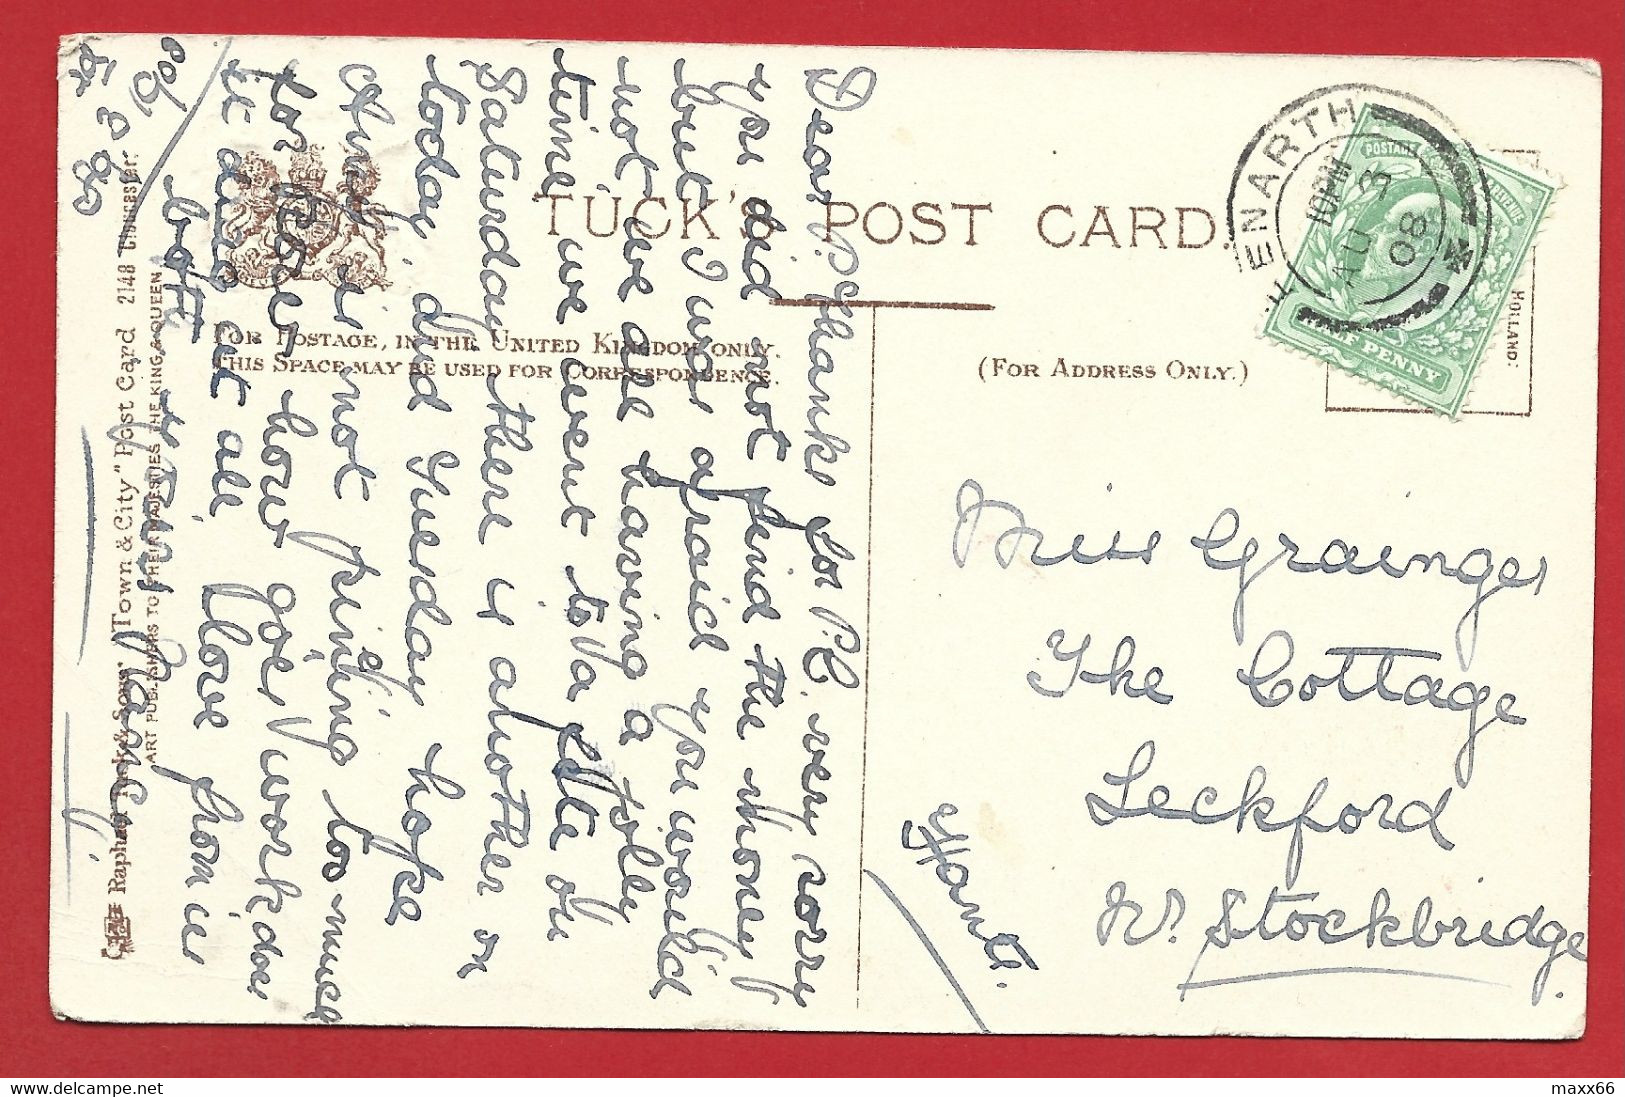 TUCK'S POST CARD.
FOR POSTAGE, IN THE UNITED KINGDOM ONLY.
THIS SPACE MAY BE USED FOR CORRESPONDENCE.
(FOR ADDRESS ONLY.)
HOLLAND:
PENARTH
10 PM
AU 3
08
POSTAGE
REVENUE
HALF PENNY
Dear P. Thanks for P.C. very sorry
you did not find the money
but I was afraid you would
not we are having a jolly
time we went to a fête on
Saturday there is another on
today, and Tuesday hope
Aunty is not pining too much
for
how goes work does
it drag at all. Love from us
both
Raphael Tuck & Sons' "Town & City" Post Card 2148 Gloucester.
ART PUBLISHERS TO THEIR MAJESTIES THE KING & QUEEN
Miss Grainger
The Cottage
Leckford
Nr. Stockbridge.
Hants.
maxx66